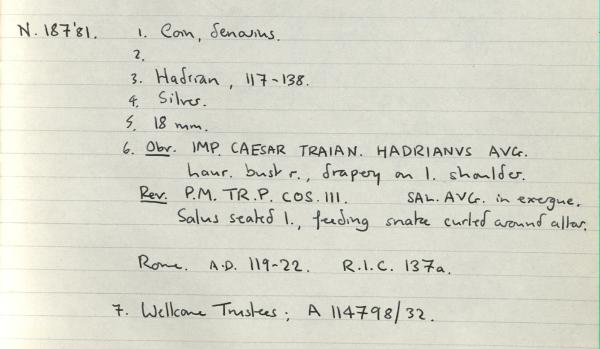 N. 187'81. 1. Coin, denarius.
2.
3. Hadrian, 117-138.
4. Silver.
5. 18 mm.
6. Obv. IMP. CAESAR TRAIAN. HADRIANVS AVG.
laur. bust r., drapery on l. shoulder.
Rev. P.M. TR.P. COS. III. SAL. AVG. in exergue.
Salus seated l., feeding snake curled around altar.
Rome. A.D. 119-22. R.I.C. 137a.
7. Wellcome Trustees; A 114798/32.